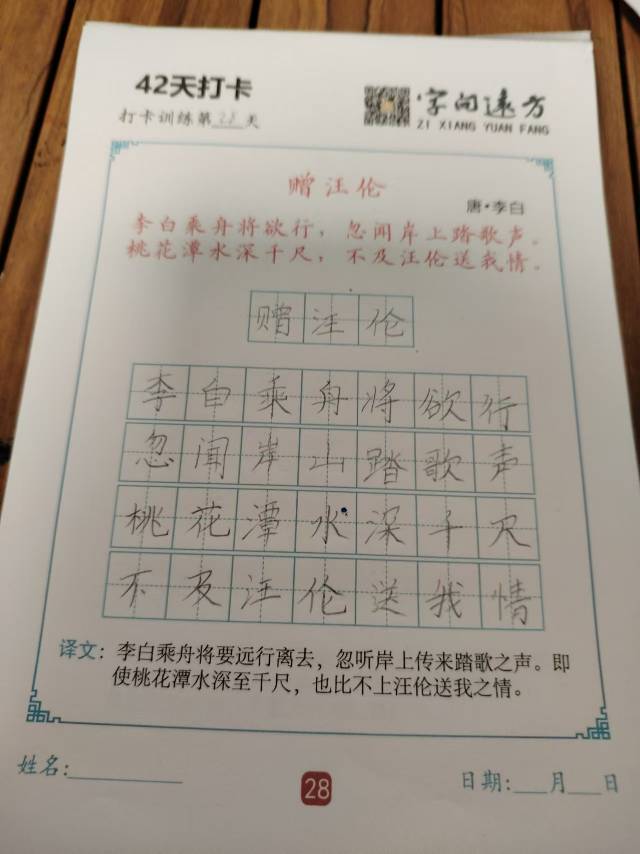 42天打卡
字向远方
ZI XIANG YUAN FANG
打卡训练第28天
赠汪伦
唐·李白
李白乘舟将欲行，忽闻岸上踏歌声。
桃花潭水深千尺，不及汪伦送我情。
赠汪伦
李白乘舟将欲行
忽闻岸山踏歌声
桃花潭水深千尺
不及汪伦送我情
译文：李白乘舟将要远行离去，忽听岸上传来踏歌之声。即
使桃花潭水深至千尺，也比不上汪伦送我之情。
姓名：
28
日期：___月___日